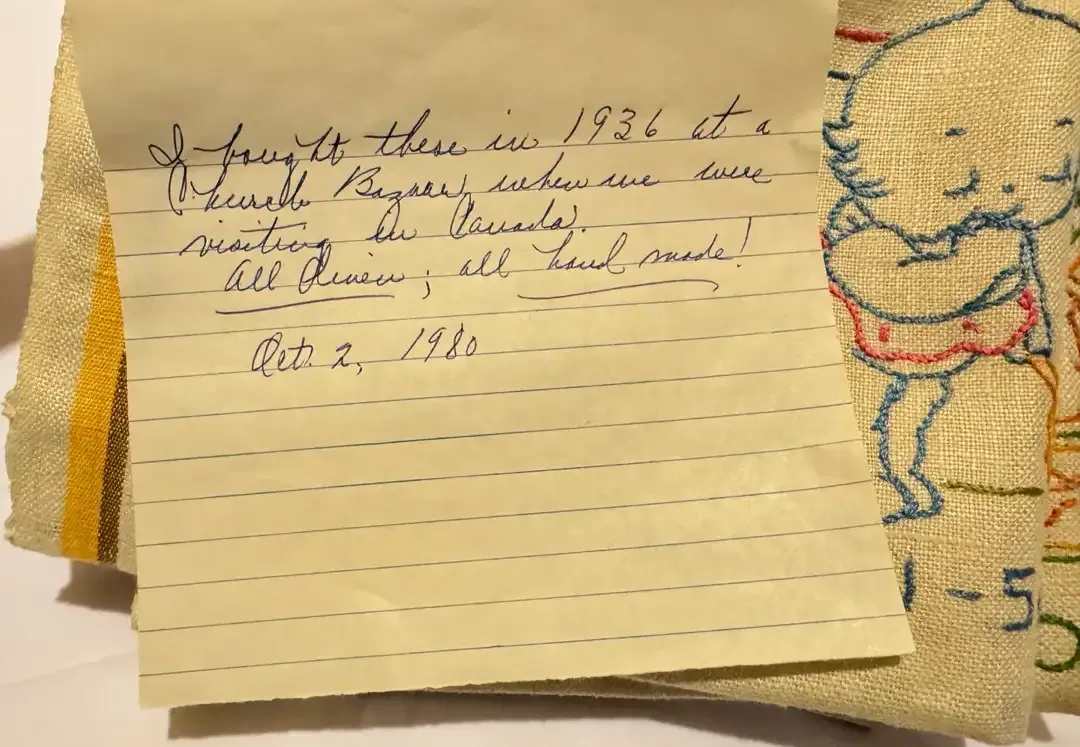 I bought these in 1936 at a
Church Bazaar, when we were
visiting in Canada.
All Linen; all hand made!
Oct. 2, 1980
-5